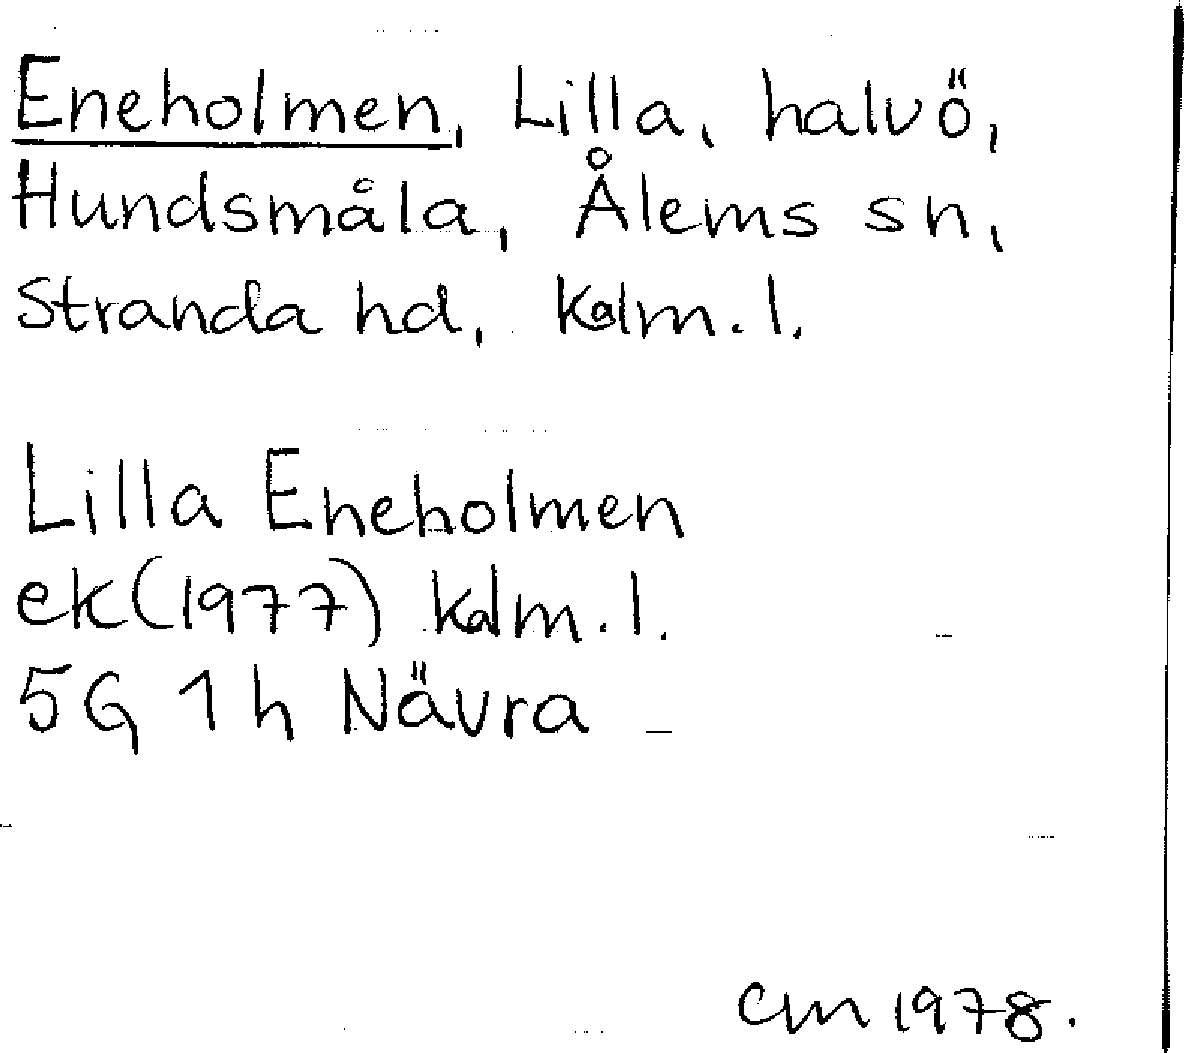 Eneholmen, Lilla, halvö,
Hundsmåla, Ålems sn,
Stranda hd, Kalm. l.
Lilla Eneholmen
ek (1977) Kalm. l.
5G 1h Nävra
CM 1978.